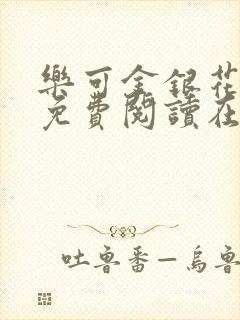 樂可金銀花
免費閱讀在
吐魯番—烏魯